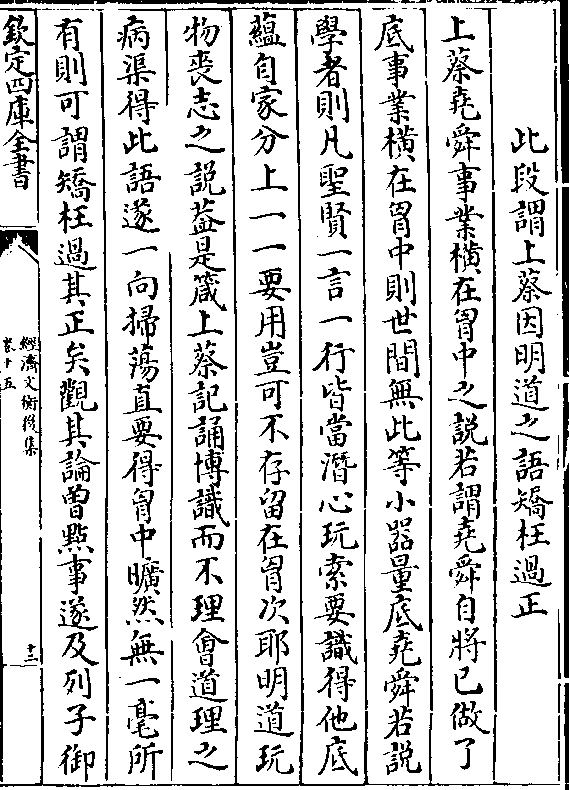 此段謂上蔡因明道之語矯枉過正
上蔡堯舜事業横在胷中之說若謂堯舜自將已做了
底事業横在胷中則世間無此等小器量底堯舜若説
學者則凡聖賢一言一行皆當潛心玩索要識得他底
蘊自家分上一一要用豈可不存留在胷次耶明道玩
物喪志之説葢是箴上蔡記誦博識而不理會道理之
病渠得此語遂一向掃蕩直要得胷中曠然無一毫所
有則可謂矯枉過其正矣觀其論曾㸃事遂及列子御
欽定四庫全書
經濟文衡後集
卷十五
十二